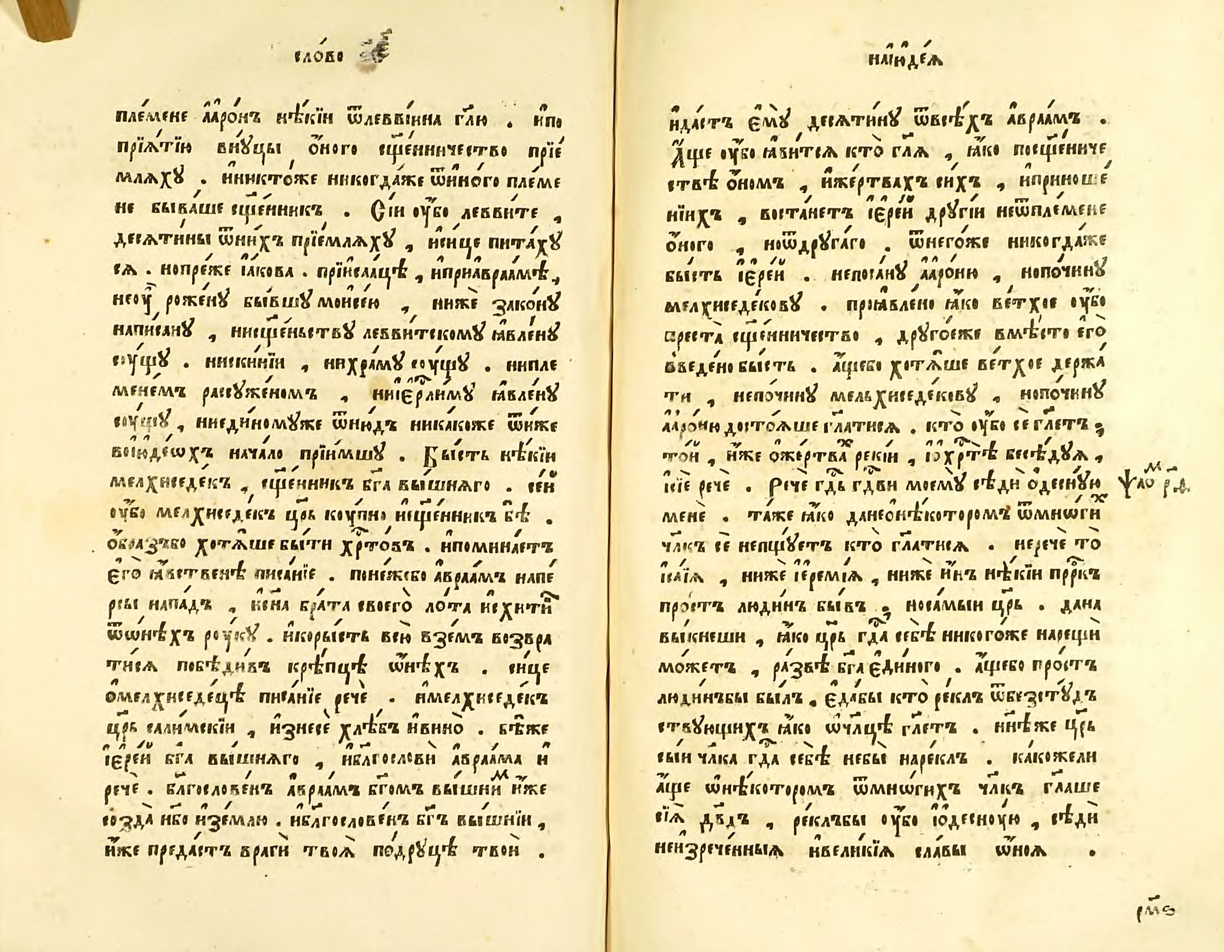 сло́во
пле́мене а҆аро́нъ нѣ́кїи ѿлеввіи́на гл҃ю . и҆по
прїѧ́тїю внꙋ́цы о҆́ного сщ҃е́нничество прїе́
млѧхꙋ . и҆никто́же никогда́же ѿи́ного пле́ме
не быва́ше сщ҃е́нникъ . Сі́и ᲂу҆́бо левви́те ,
десѧти́ны ѿни́хъ прїе́млѧхꙋ , и҆си́це пита́хꙋ
сѧ . нопре́же і҆а́кова . прїи҆са́ацѣ , и҆приа҆враа́мѣ ,
неᲂу҆̀ роже́нꙋ бы́вшꙋ моисе́ю , ни́же зако́нꙋ
напи́санꙋ , нисщ҃е́ньствꙋ левви́тскомꙋ ꙗ҆вле́нꙋ
сꙋ́щꙋ . нискинїи , нихра́мꙋ сꙋ́щꙋ . нипле
менемъ рассꙋже́номъ , ниі҆ер҃ли́мꙋ ꙗ҆вле́нꙋ
сꙋ́щꙋ , ниеди́номꙋже ѿи҆ю҆дъ ника́коже ѿи́же
воі҆ю҆де́ѡхъ нача́ло прїи́мшꙋ . Бы́сть нѣ́кїи
мелхиседе́къ , сщ҃е́нникъ бг҃а вы́шнѧго . се́и
ᲂу҆́бо мелхиседе́къ цр҃ь кꙋ́пно и҆сщ҃е́нникъ бѣ̀ .
о҆́бразъбо хотѧ́ше бы́ти хр҃то́въ . и҆помина́етъ
є҆го̀ ꙗ҆́вственѣ писа́нїе . поне́жебо а҆враа́мъ напе́
рсы напа́дъ , и҆сн҃а бра́та своего̀ ло́та и҆схити́
ѿѡ҆нѣ́хъ рꙋ́кꙋ̀ . и҆коры́сть всю̀ взе́мъ возвра
ти́сѧ побѣди́въ крѣ́пцѣ ѡ҆нѣ́хъ . си́це
ѡ҆мелхиседе́цѣ писа́нїе речѐ . и҆мелхиседе́къ
цр҃ь сали́мскїи , и҆знесѐ хлѣ́бъ и҆вино̀ . бѣ́же
і҆ере́й бг҃а вы́шнѧго , и҆блгословѝ а҆враа́ма и҆
речѐ . блгослове́нъ а҆враа́мъ бг҃омъ вы́шнимъ и҆́же
созда̀ нб҃о и҆зе́млю . и҆блгослове́нъ бг҃ъ вы́шнїи ,
и҆́же преда́стъ врагѝ твоѧ̀ подрꙋ́цѣ твоѝ .
наі҆ю҆де́ѧ
и҆да́стъ є҆мꙋ̀ десѧти́нꙋ ѿвсѣ́хъ а҆враа́мъ .
А҆́ще ᲂу҆́бо ꙗ҆ви́тсѧ кто̀ гл҃ѧ , ꙗ҆́ко посщ҃е́нниче
ствѣ о҆́номъ , и҆же́ртвахъ си́хъ , и҆приноше́
нїихъ , воста́нетъ і҆ере́й дрꙋгі́и неѿпле́мене
о҆́ного , ноѿдрꙋга́го . ѿнего́же никогда́же
бы́сть і҆ере́й . непоса́нꙋ а҆аро́ню , нопочи́нꙋ
мелхиседе́ковꙋ . проꙗ҆влено̀ ꙗ҆́ко ве́тхое ᲂу҆́бо
преста̀ сщ҃е́нничество , дрꙋго́еже вмѣ́сто є҆го̀
введено̀ бы́сть . а҆́щебо хотѧ́ше ве́тхое держа́
ти , непочи́нꙋ мельхиседе́ковꙋ , нопочи́нꙋ
а҆аро́ню досто́ѧше гл҃атисѧ . кто̀ ᲂу҆́бо сѐ гл҃етъ ;
то́й , и҆́же ѡ҆же́ртвахъ ре́кїи , ѡ҆хр҃тѣ̀ бесѣ́дꙋѧ ,
сїѐ речѐ . Речѐ гд҃ь гд҃ви моемꙋ̀ сѣдѝ о҆деснꙋ́ю
менѐ . та́же ꙗ҆́ко данео҆нѣ́которомъ ѿмнѡ́гихъ
чл҃къ сѐ непщꙋ́етъ кто̀ гл҃атисѧ . неречѐ то
и҆са́їѧ , нижѐ і҆еремі́ѧ , нижѐ и҆́нъ нѣ́кїи прⷪ҇ркъ
про́стъ лю́динъ бы́въ ; носа́мыи цр҃ь . дана
вы́кнеши , ꙗ҆́ко цр҃ь гд҃а себѣ̀ никого́же нарещѝ
мо́жетъ , ра́звѣ бг҃а є҆ди́ного . а҆́щебо про́стъ
лю́динъбы бы́лъ , є҆да́бы кто̀ ре́клъ ѿбезстꙋ́дъ
ствꙋющихъ ꙗ҆́ко ѡ҆чл҃цѣ гл҃етъ . нн҃ѣже цр҃ь
сы́и чл҃ка гд҃а себѣ̀ небы̀ наре́клъ . ка́кожели
а҆́ще ѡ҆нѣ́которомъ ѿмнѡ́гихъ чл҃къ гл҃аше
сїѧ̀ дв҃дъ , ре́клъбы ᲂу҆́бо ѡ҆десно́ую , сѣдѝ
неизрече́нныѧ и҆вели́кїѧ сла́вы ѡ҆́ноѧ .
ѱало́м р҃д҃.
рм҃ѕ